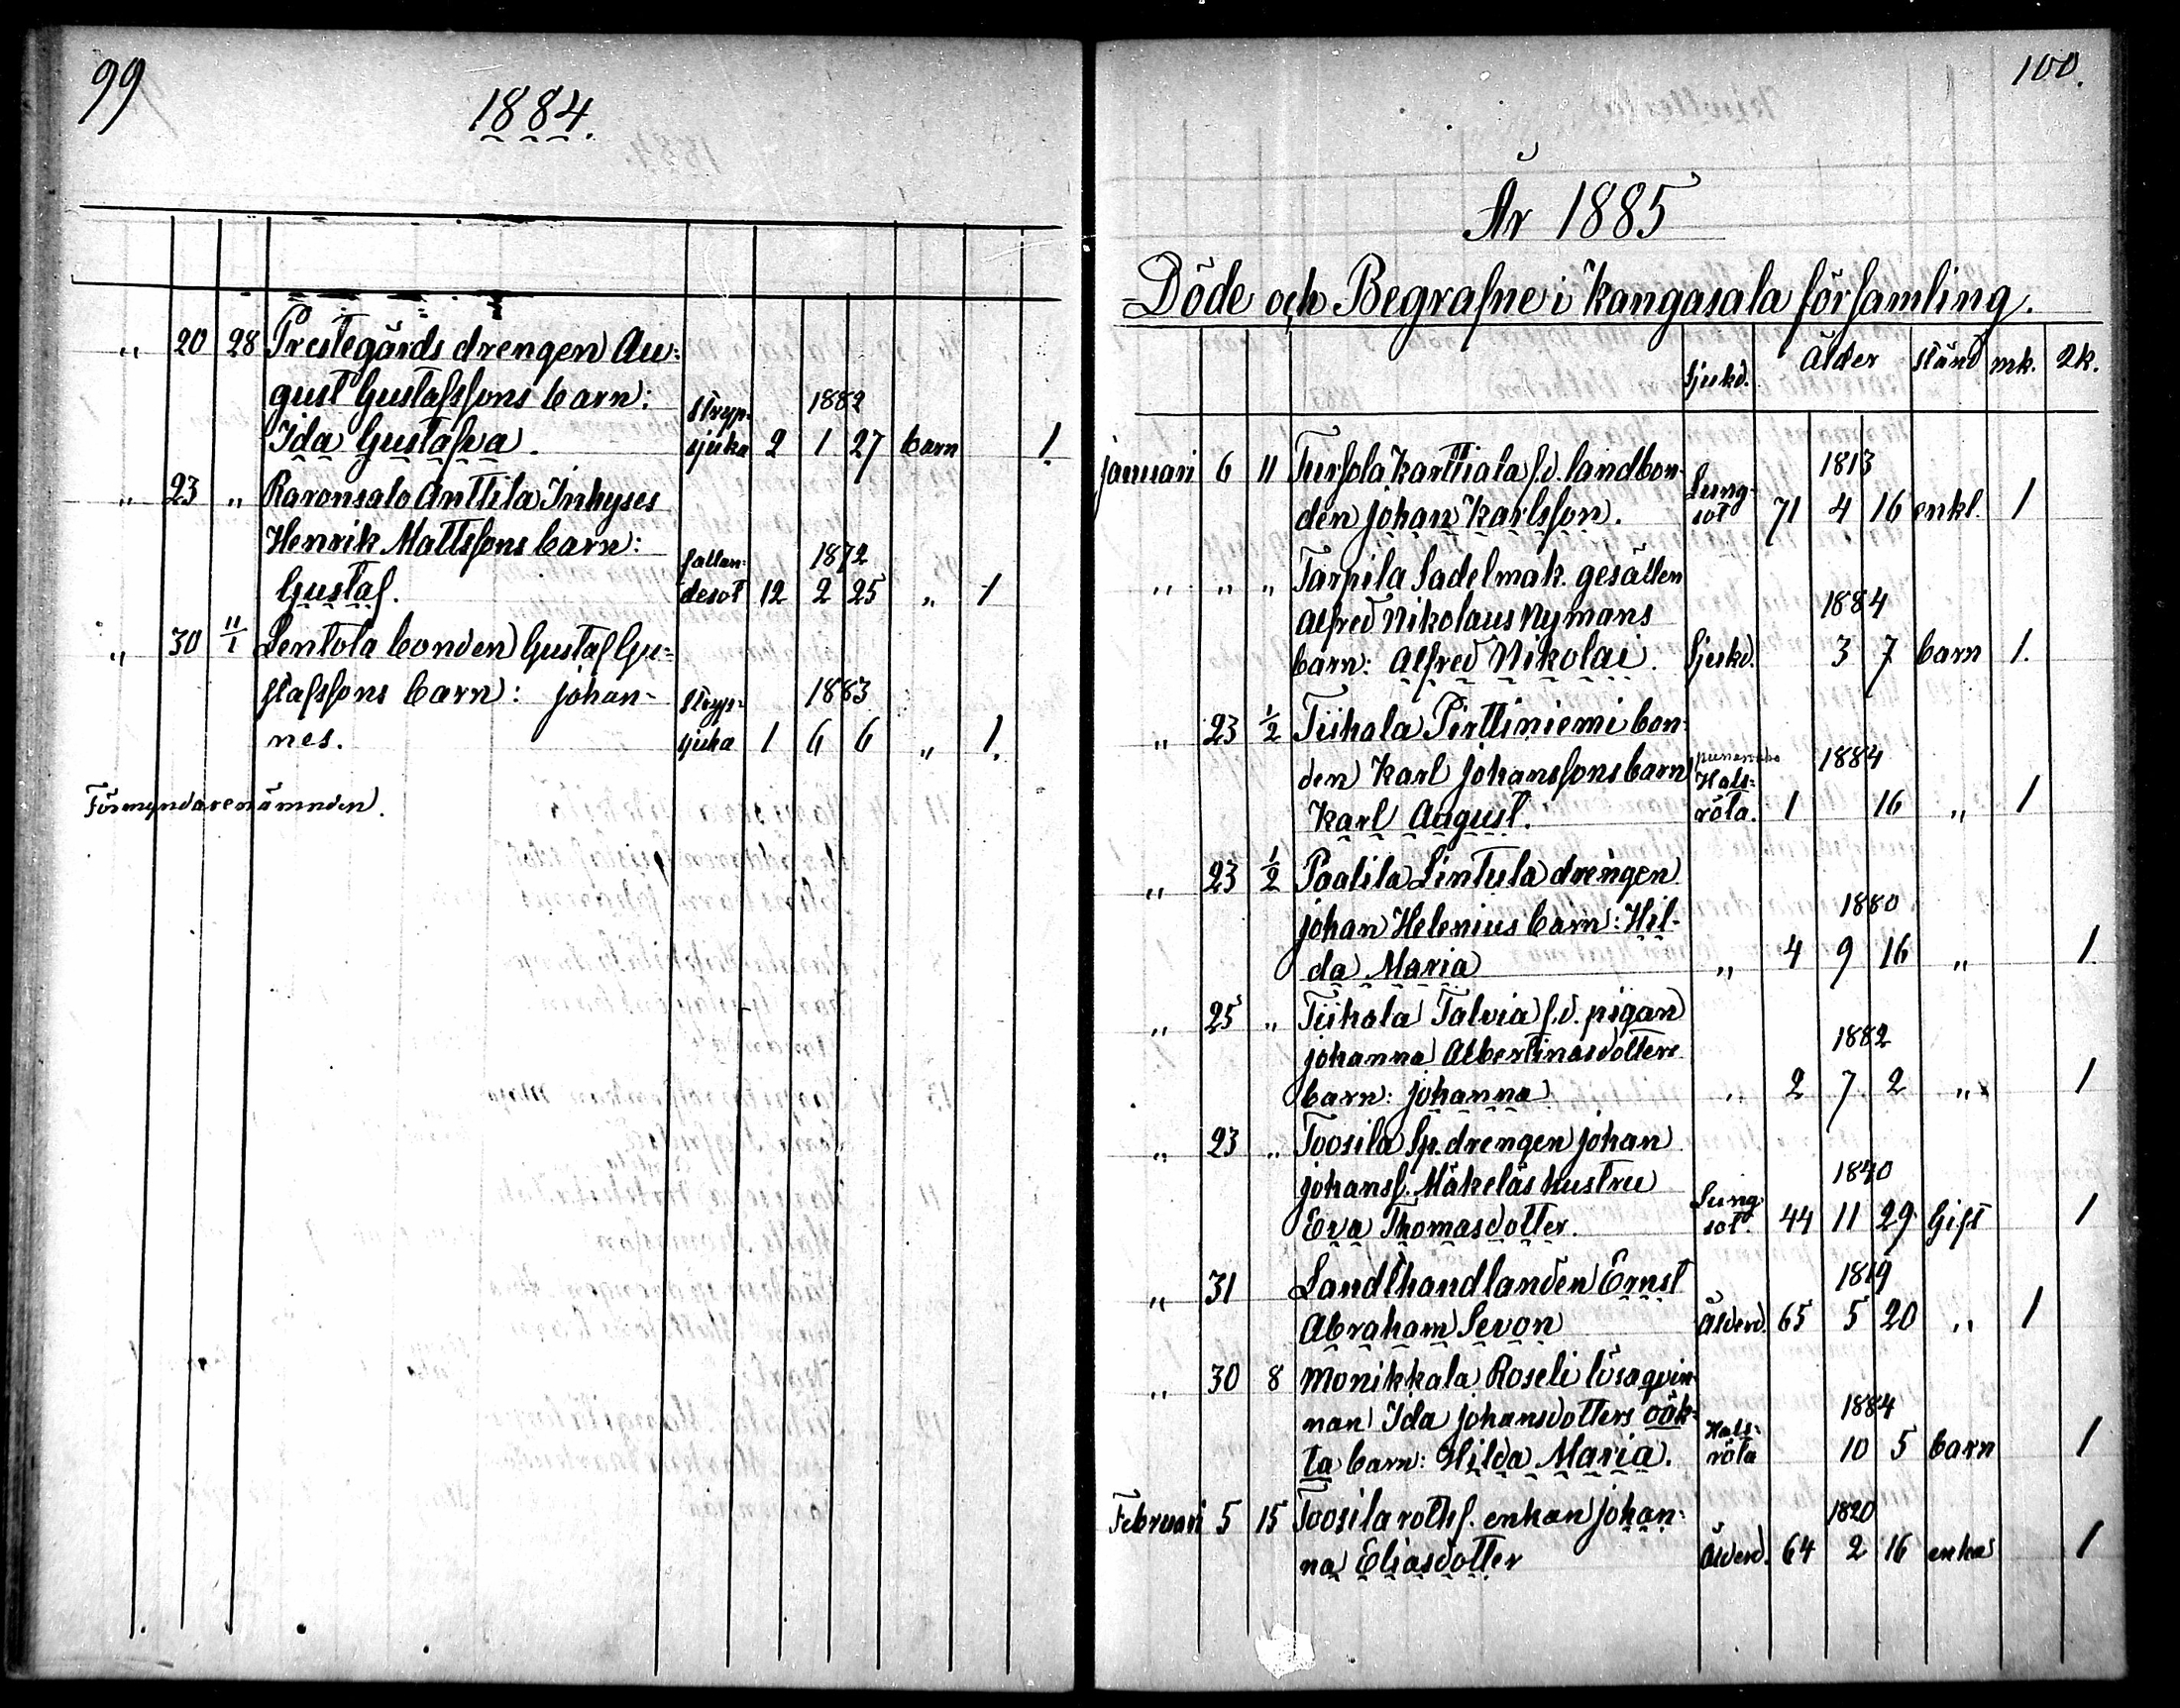 99
1884.
„ 20 28 Prestegårds drengen Au=
gust Gustafssons barn: Stryp- 1882
Ida Gustafva. sjuka 2 1 27 barn 1.
„ 23 „ Raronsalo Anttila Inhyses
Henrik Mattssons barn: fallan- 1872
Gustaf. desot 12 2 25 „ 1
„ 30 11/1 Lentola bonden Gustaf Gu=
stafssons barn: Johan- Stryp- 1883
nes. sjuka 1 6 6 „ 1.
Förmyndarenämnden.
100.
År 1885
Döde och Begrafne i Kangasala församling.
Sjukd. Ålder stånd mk. qk.
Januari 6 11 Tursola Karttiala f.d. landbon- Lung- 1813
den Johan Karlsson. sot 71 4 16 enkl. 1
„ „ „ Tarpila Sadelmak. gesällen
Alfred Nikolaus Nymans 1884
barn: Alfred Nikolai. Sjukd. 3 7 barn 1.
„ 23 1/2 Tiihala Pirttiniemi bon-
den Karl Johanssons barn Hals- 1884
Karl August. röta. 1 16 „ 1
„ 23 1/2 Paalila Lintula drengen
Johan Helenius barn: Hil- 1880
da Maria „ 4 9 16 „ 1
„ 25 „ Tiihala Talvia f.d. pigan
Johanna Albertinasdotters 1882
barn: Johanna „ 2 7 2 „ 1
„ 23 „ Toosila Sp. drengen Johan
Johanss. Mäkeläs hustru Lung- 1840
Eva Thomasdotter. sot. 44 11 29 Gift 1
„ 31 Landthandlanden Ernst 1819
Abraham Sevon Ålderd. 65 5 20 „ 1
„ 30 8 Monikkala Roseli lösaqvin-
nan Ida Johansdotters oäk- Hals- 1884
ta barn: Hilda Maria. röta 10 5 barn 1
Februari 5 15 Toosila rothf. enkan Johan- 1820
na Eliasdotter Ålderd. 64 2 16 enka 1